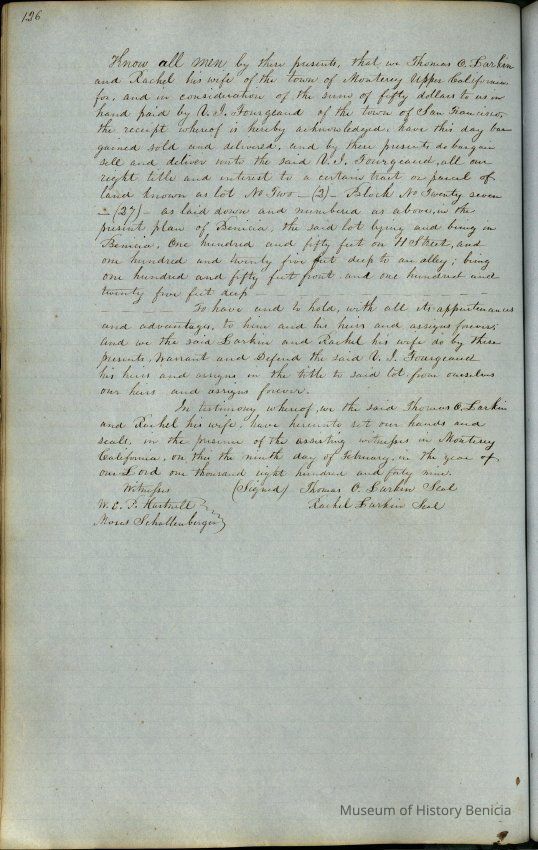 126
Know all men by these presents, that we Thomas O. Larkin
and Rachel his wife of the town of Monterey Upper California
for, and in consideration of the sum of fifty dollars to us in
hand paid by V. J. Fourgeaud of the town of San Francisco,
the receipt whereof is hereby acknowledged, have this day bar
gained sold and delivered, and by these presents do bargain
sell and deliver unto the said V. J. Fourgeaud, all our
right title and interest to a certain tract or parcel of
land known as lot No Two _(2)_ Block No Twenty seven
_ (27)_ as laid down and numbered as above, in the
present plan of Benicia, the said lot lying and being in
Benicia, One hundred and fifty feet on H Street, and
one hundred and twenty five feet deep to an alley; being
one hundred and fifty feet front and one hundred and
twenty five feet deep
To have and to hold, with all its appurtenances
and advantages, to him and his heirs and assigns forever;
and we the said Larkin and Rachel his wife do by these
presents, Warrant and Defend the said V. J. Fourgeaud
his heirs and assigns in the title to said lot from ourselves
our heirs and assigns forever.
In testimony whereof, we the said Thomas O. Larkin
and Rachel his wife, have hereunto set our hands and
seals, in the presence of the assisting witnesses in Monterey
California, on this the ninth day of February, in the year of
our Lord one thousand eight hundred and forty nine.
Witnesses (Signed) Thomas O. Larkin Seal
W. E. P. Hartnell Rachel Larkin Seal
Moses Schallenberger
Museum of History Benicia